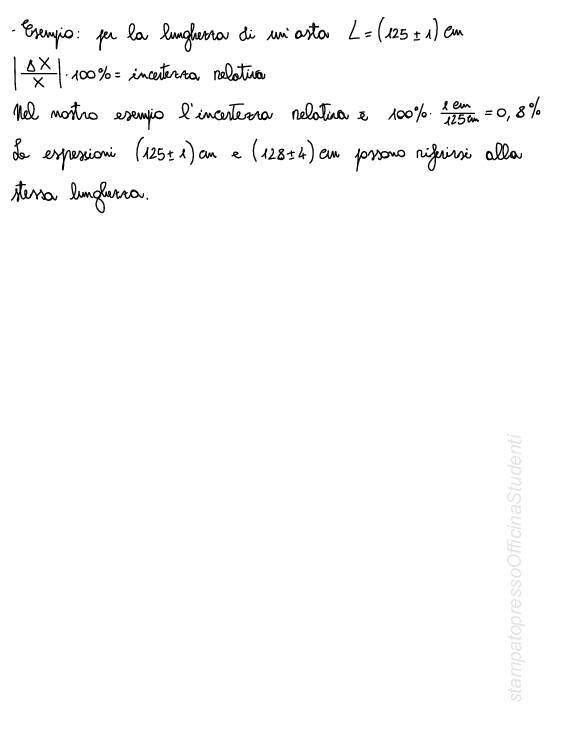 · Esempio: per la lunghezza di un'asta L = (125 ± 1) cm
|ΔX/X| · 100% = incertezza relativa
Nel nostro esempio l'incertezza relativa è 100% · 1 cm/125 cm = 0,8%
Le espressioni (125 ± 1) cm e (128 ± 4) cm possono riferirsi alla
stessa lunghezza.
stampatopressoOfficinaStudenti